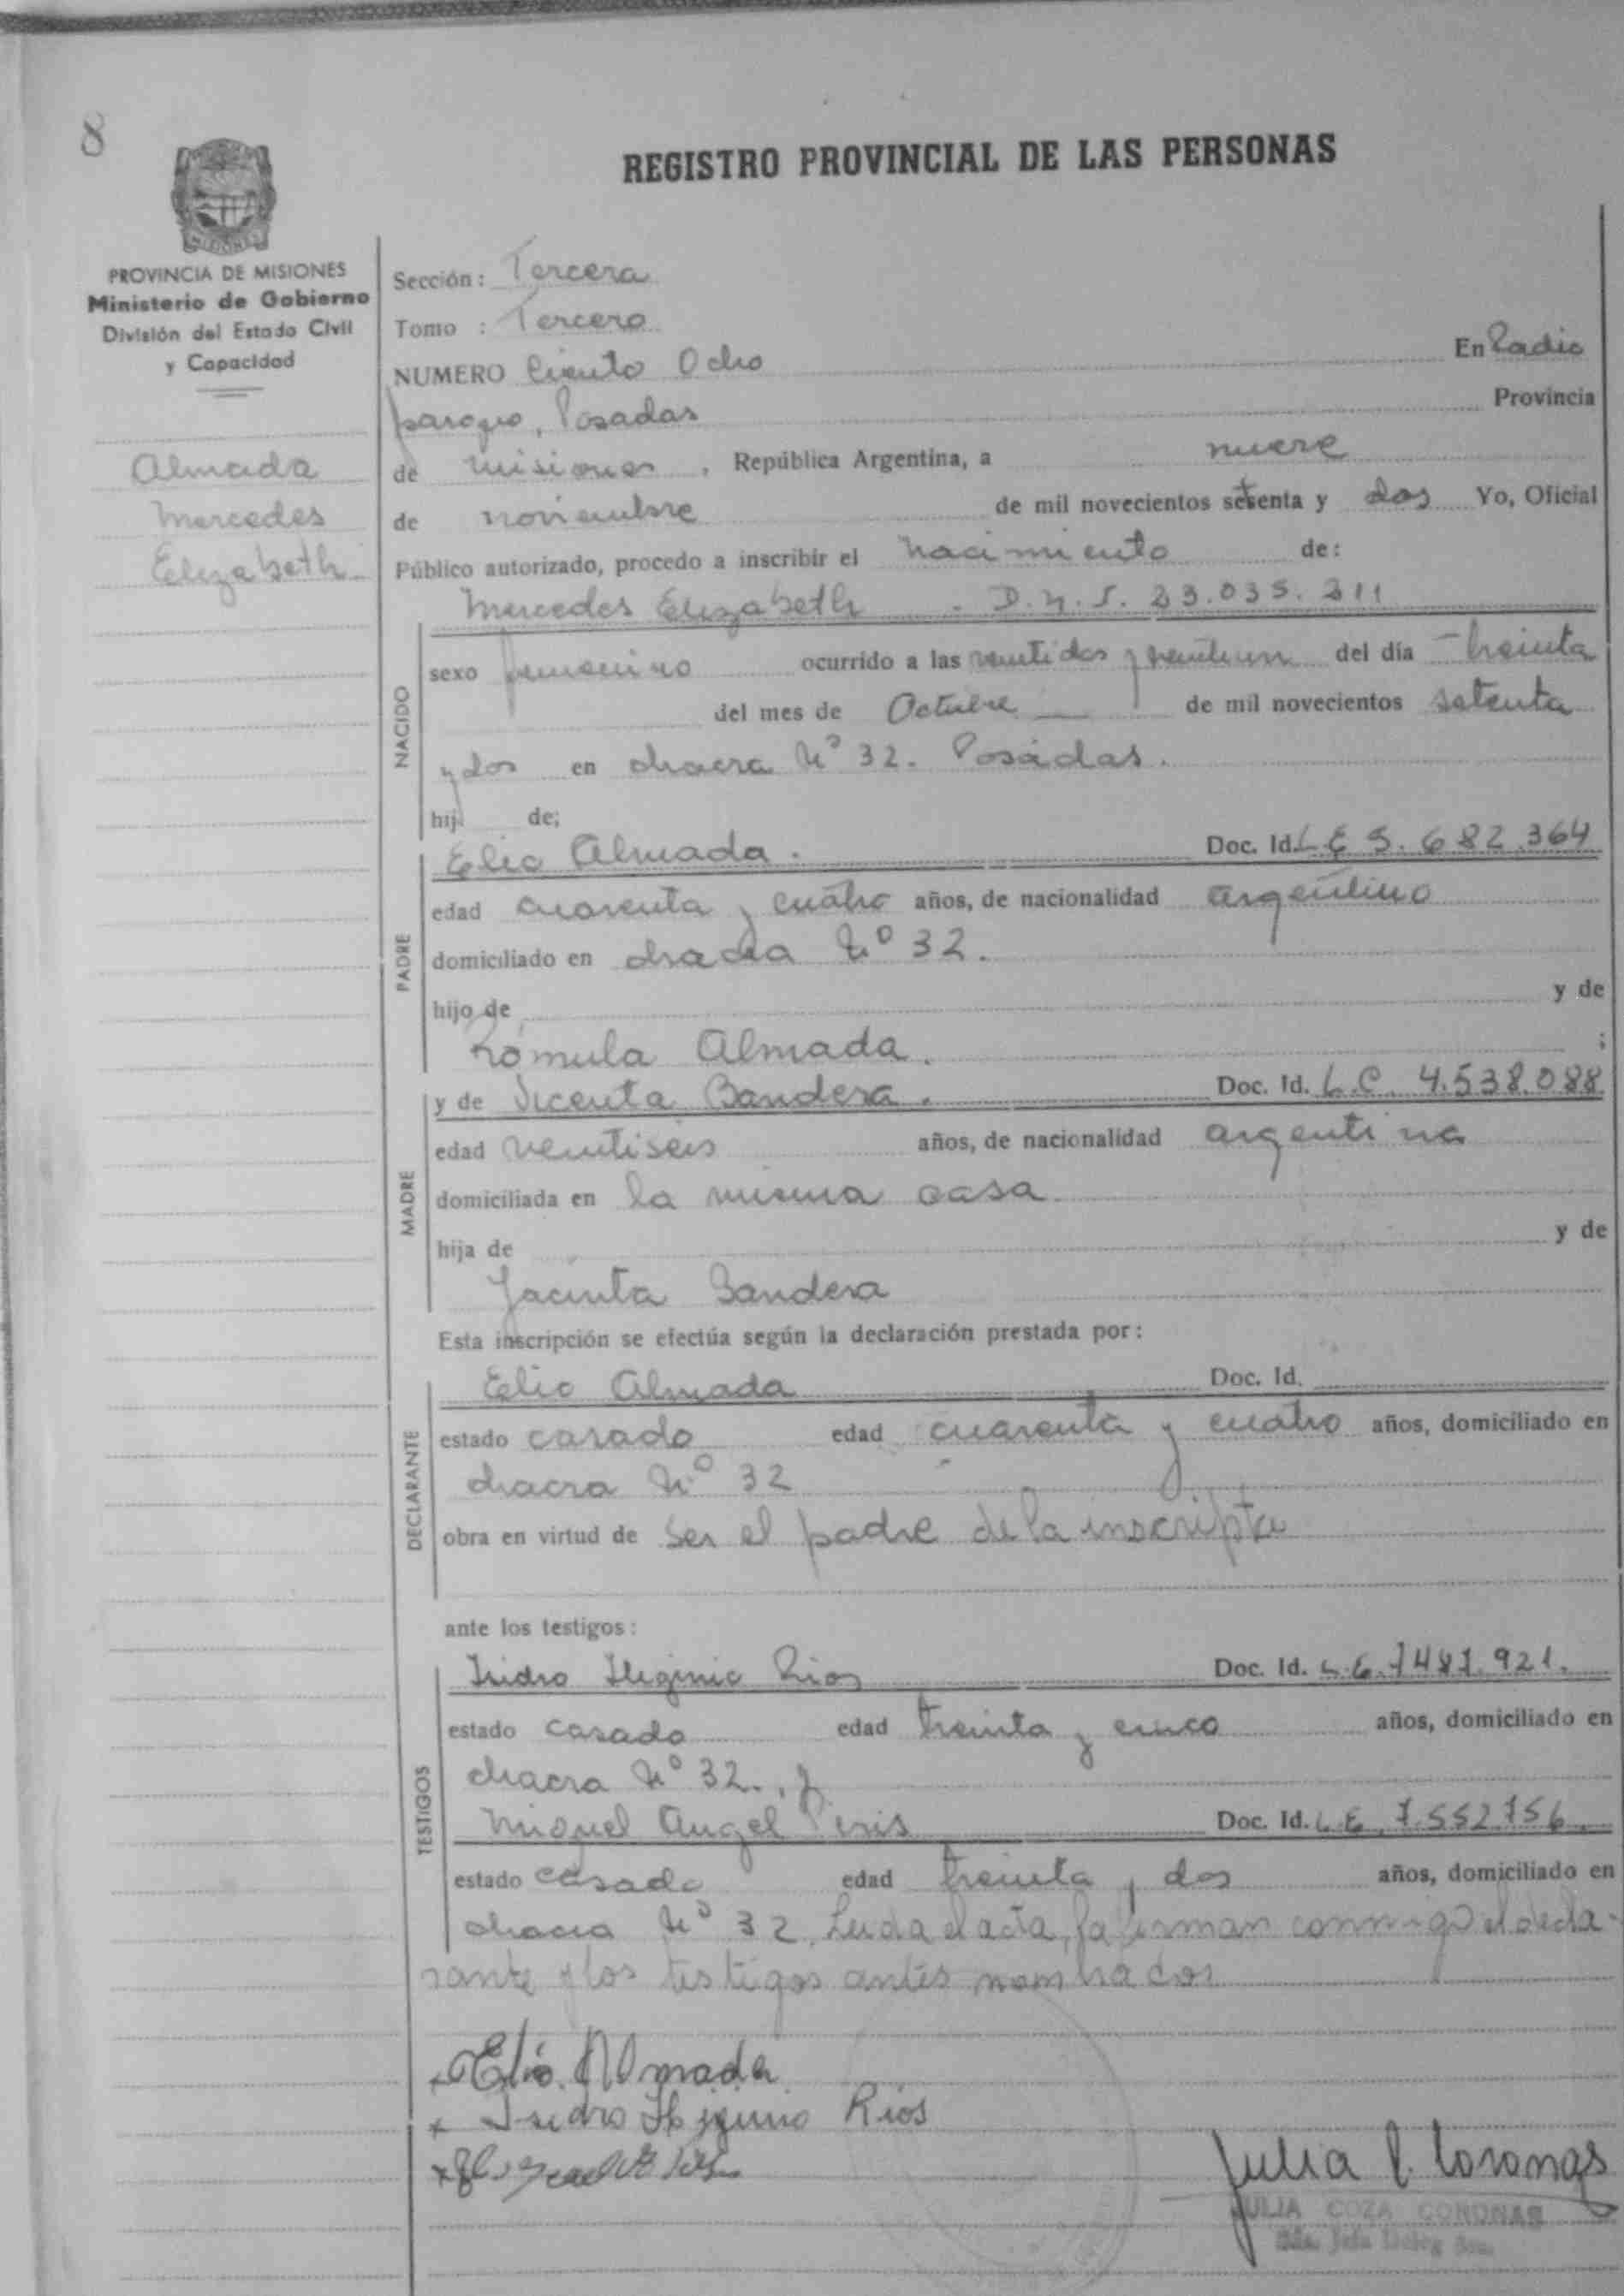 8
REGISTRO PROVINCIAL DE LAS PERSONAS
MISIONES
PROVINCIA DE MISIONES
Ministerio de Gobierno
División del Estado Civil
y Capacidad
Almada
Mercedes
Elizabeth
Sección: Tercera
Tomo : Tercero
NUMERO Ciento Ocho En Radio
paroqio, Posadas Provincia
de misiones, República Argentina, a nueve
de noviembre de mil novecientos setenta y dos Yo, Oficial
Público autorizado, procedo a inscribir el nacimiento de:
Mercedes Elizabeth - D.N.I. 23.035.211
NACIDO
sexo femenino ocurrido a las veintidos y veintiun del día treinta
del mes de Octubre de mil novecientos setenta
y dos en chacra Nº 32. Posadas.
hij de;
PADRE
Elio Almada. Doc. Id. L E 5.682.364
edad cuarenta y cuatro años, de nacionalidad argentino
domiciliado en chacra Nº 32.
hijo de y de
Romula Almada. ;
MADRE
y de Vicenta Bandera. Doc. Id. L.C. 4.538.088
edad veintiseis años, de nacionalidad argentina
domiciliada en la misma casa
hija de y de
Jacinta Bandera
Esta inscripción se efectúa según la declaración prestada por:
DECLARANTE
Elio Almada Doc. Id.
estado casado edad cuarenta y cuatro años, domiciliado en
chacra Nº 32
obra en virtud de ser el padre de la inscripta
ante los testigos:
TESTIGOS
Isidro Higinio Rios Doc. Id. L.E. 7481.921.
estado casado edad treinta y cinco años, domiciliado en
chacra Nº 32., y
Miguel Angel Doc. Id. L.E. 7.552.756.
estado casado edad treinta y dos años, domiciliado en
chacra Nº 32. Leida el acta, la firman conmigo el decla-
rante y los testigos antes nombrados
Elio Almada
Isidro Higinio Rios
Julia C. Coronas
JULIA COZA CORONAS